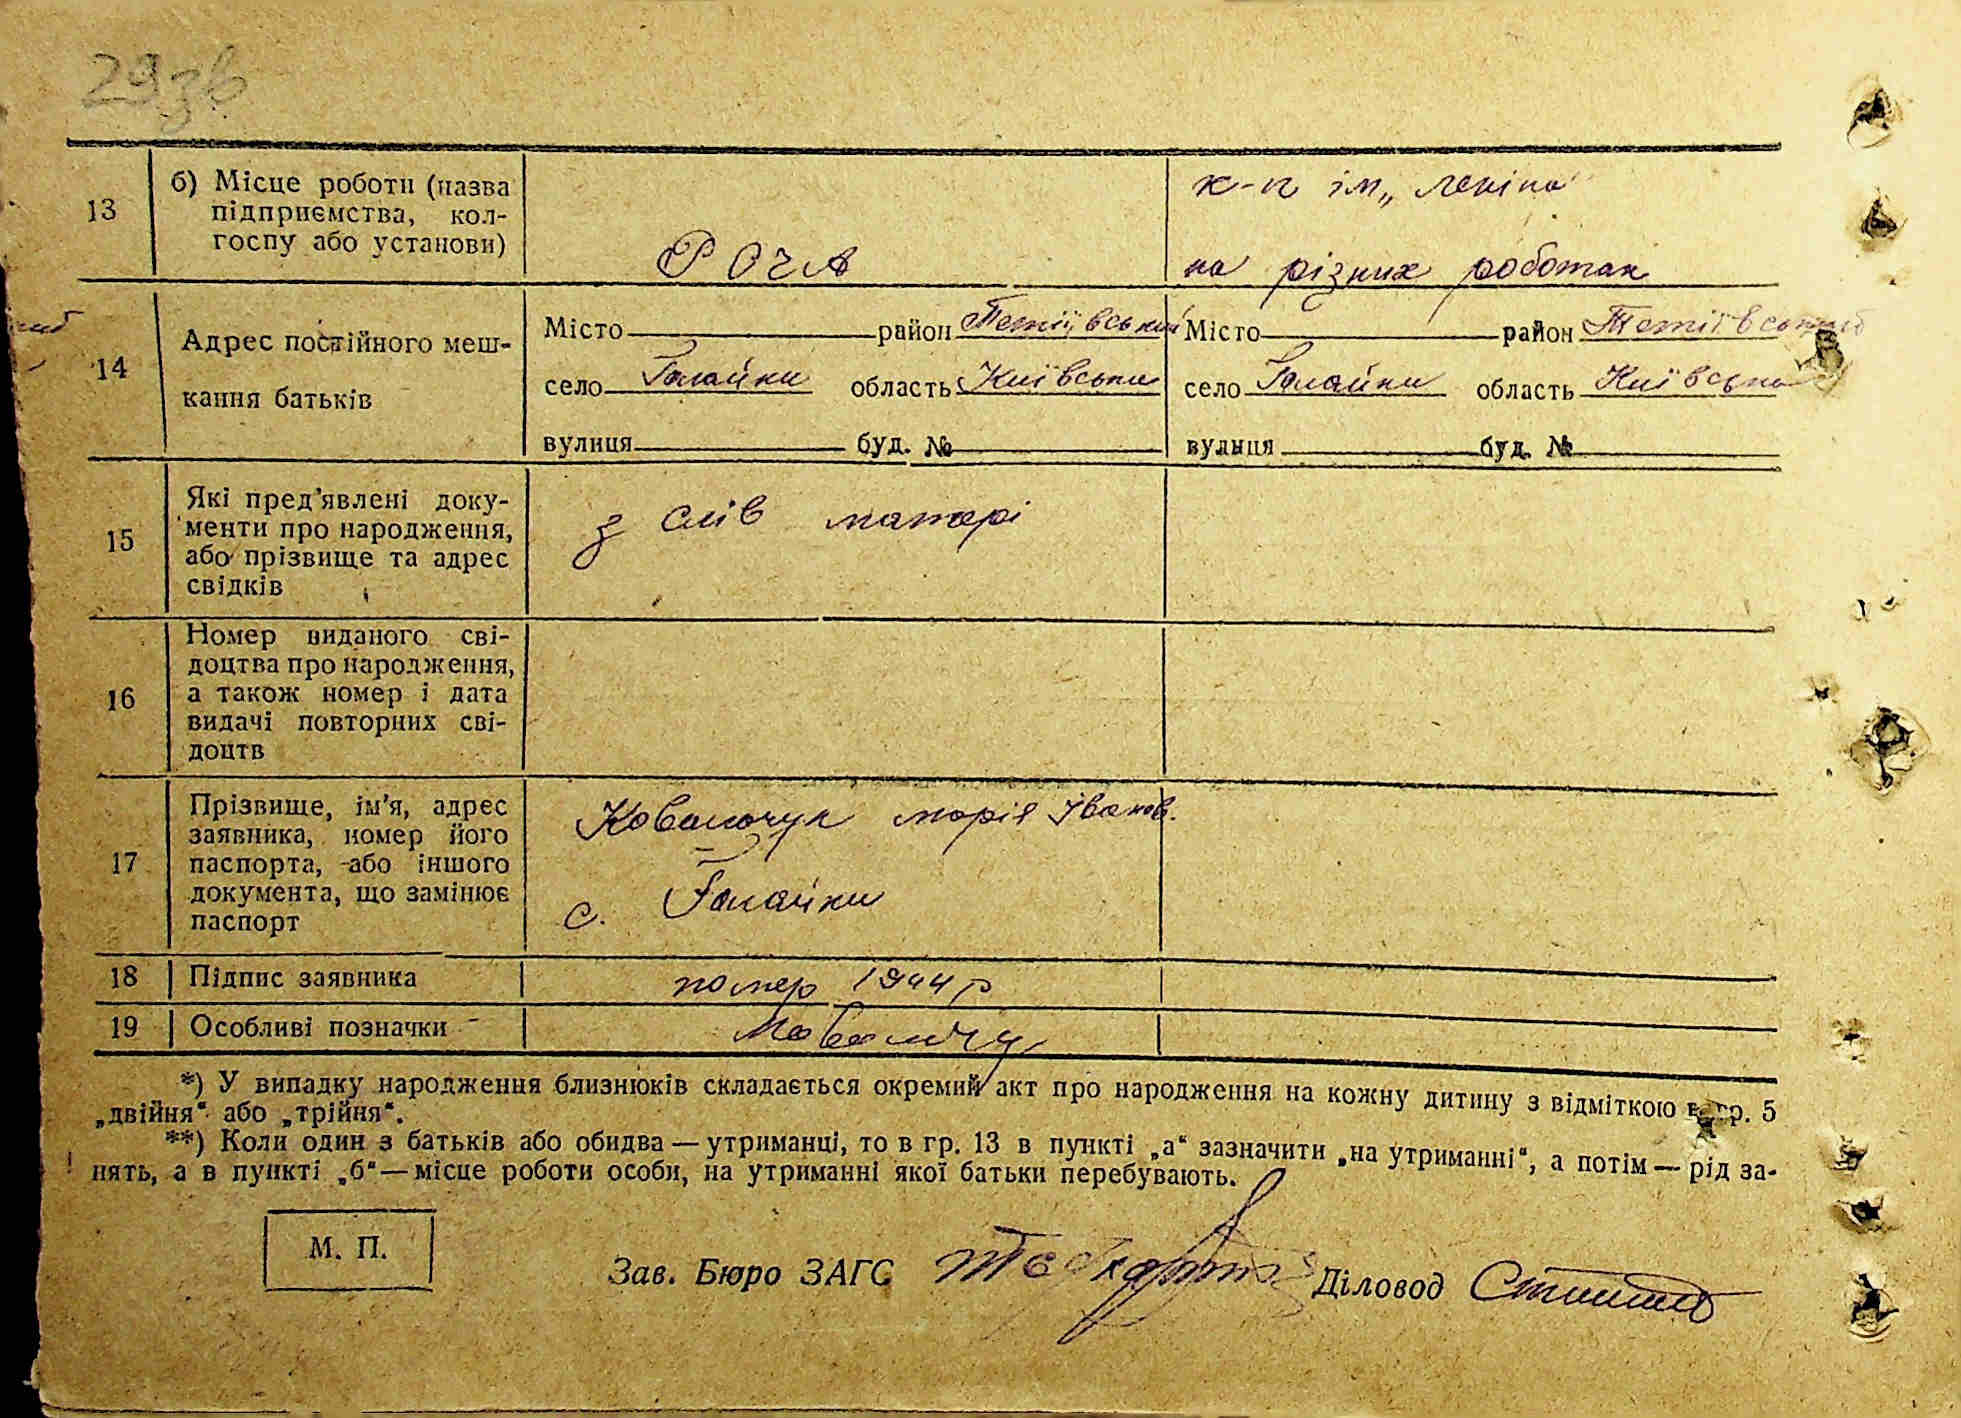 29зв
13 б) Місце роботи (назва підприємства, колгоспу або установи)
РОЧА
к-п ім„ Леніна"
на різних роботах
14 Адрес постійного мешкання батьків
Місто район Тетіївський Місто район Тетіївський
село Галайки область Київська село Галайки область Київська
вулиця буд. № вулиця буд. №
15 Які пред'явлені доку-
менти про народження,
або прізвище та адрес
свідків
з слів матері
16 Номер виданого сві-
доцтва про народження,
а також номер і дата
видачі повторних сві-
доцтв
17 Прізвище, ім'я, адрес
заявника, номер його
паспорта, або іншого
документа, що замінює
паспорт
Ковальчук марія Іванів.
с. Галайки
18 Підпис заявника
помер 1944 р
19 Особливі позначки
*) У випадку народження близнюків складається окремий акт про народження на кожну дитину з відміткою в гр. 5
„двійня“ або „трійня“.
**) Коли один з батьків або обидва — утриманці, то в гр. 13 в пункті „а“ зазначити „на утриманні“, а потім — рід за-
нять, а в пункті „б“ — місце роботи особи, на утриманні якої батьки перебувають.
М. П.
Зав. Бюро ЗАГС Діловод